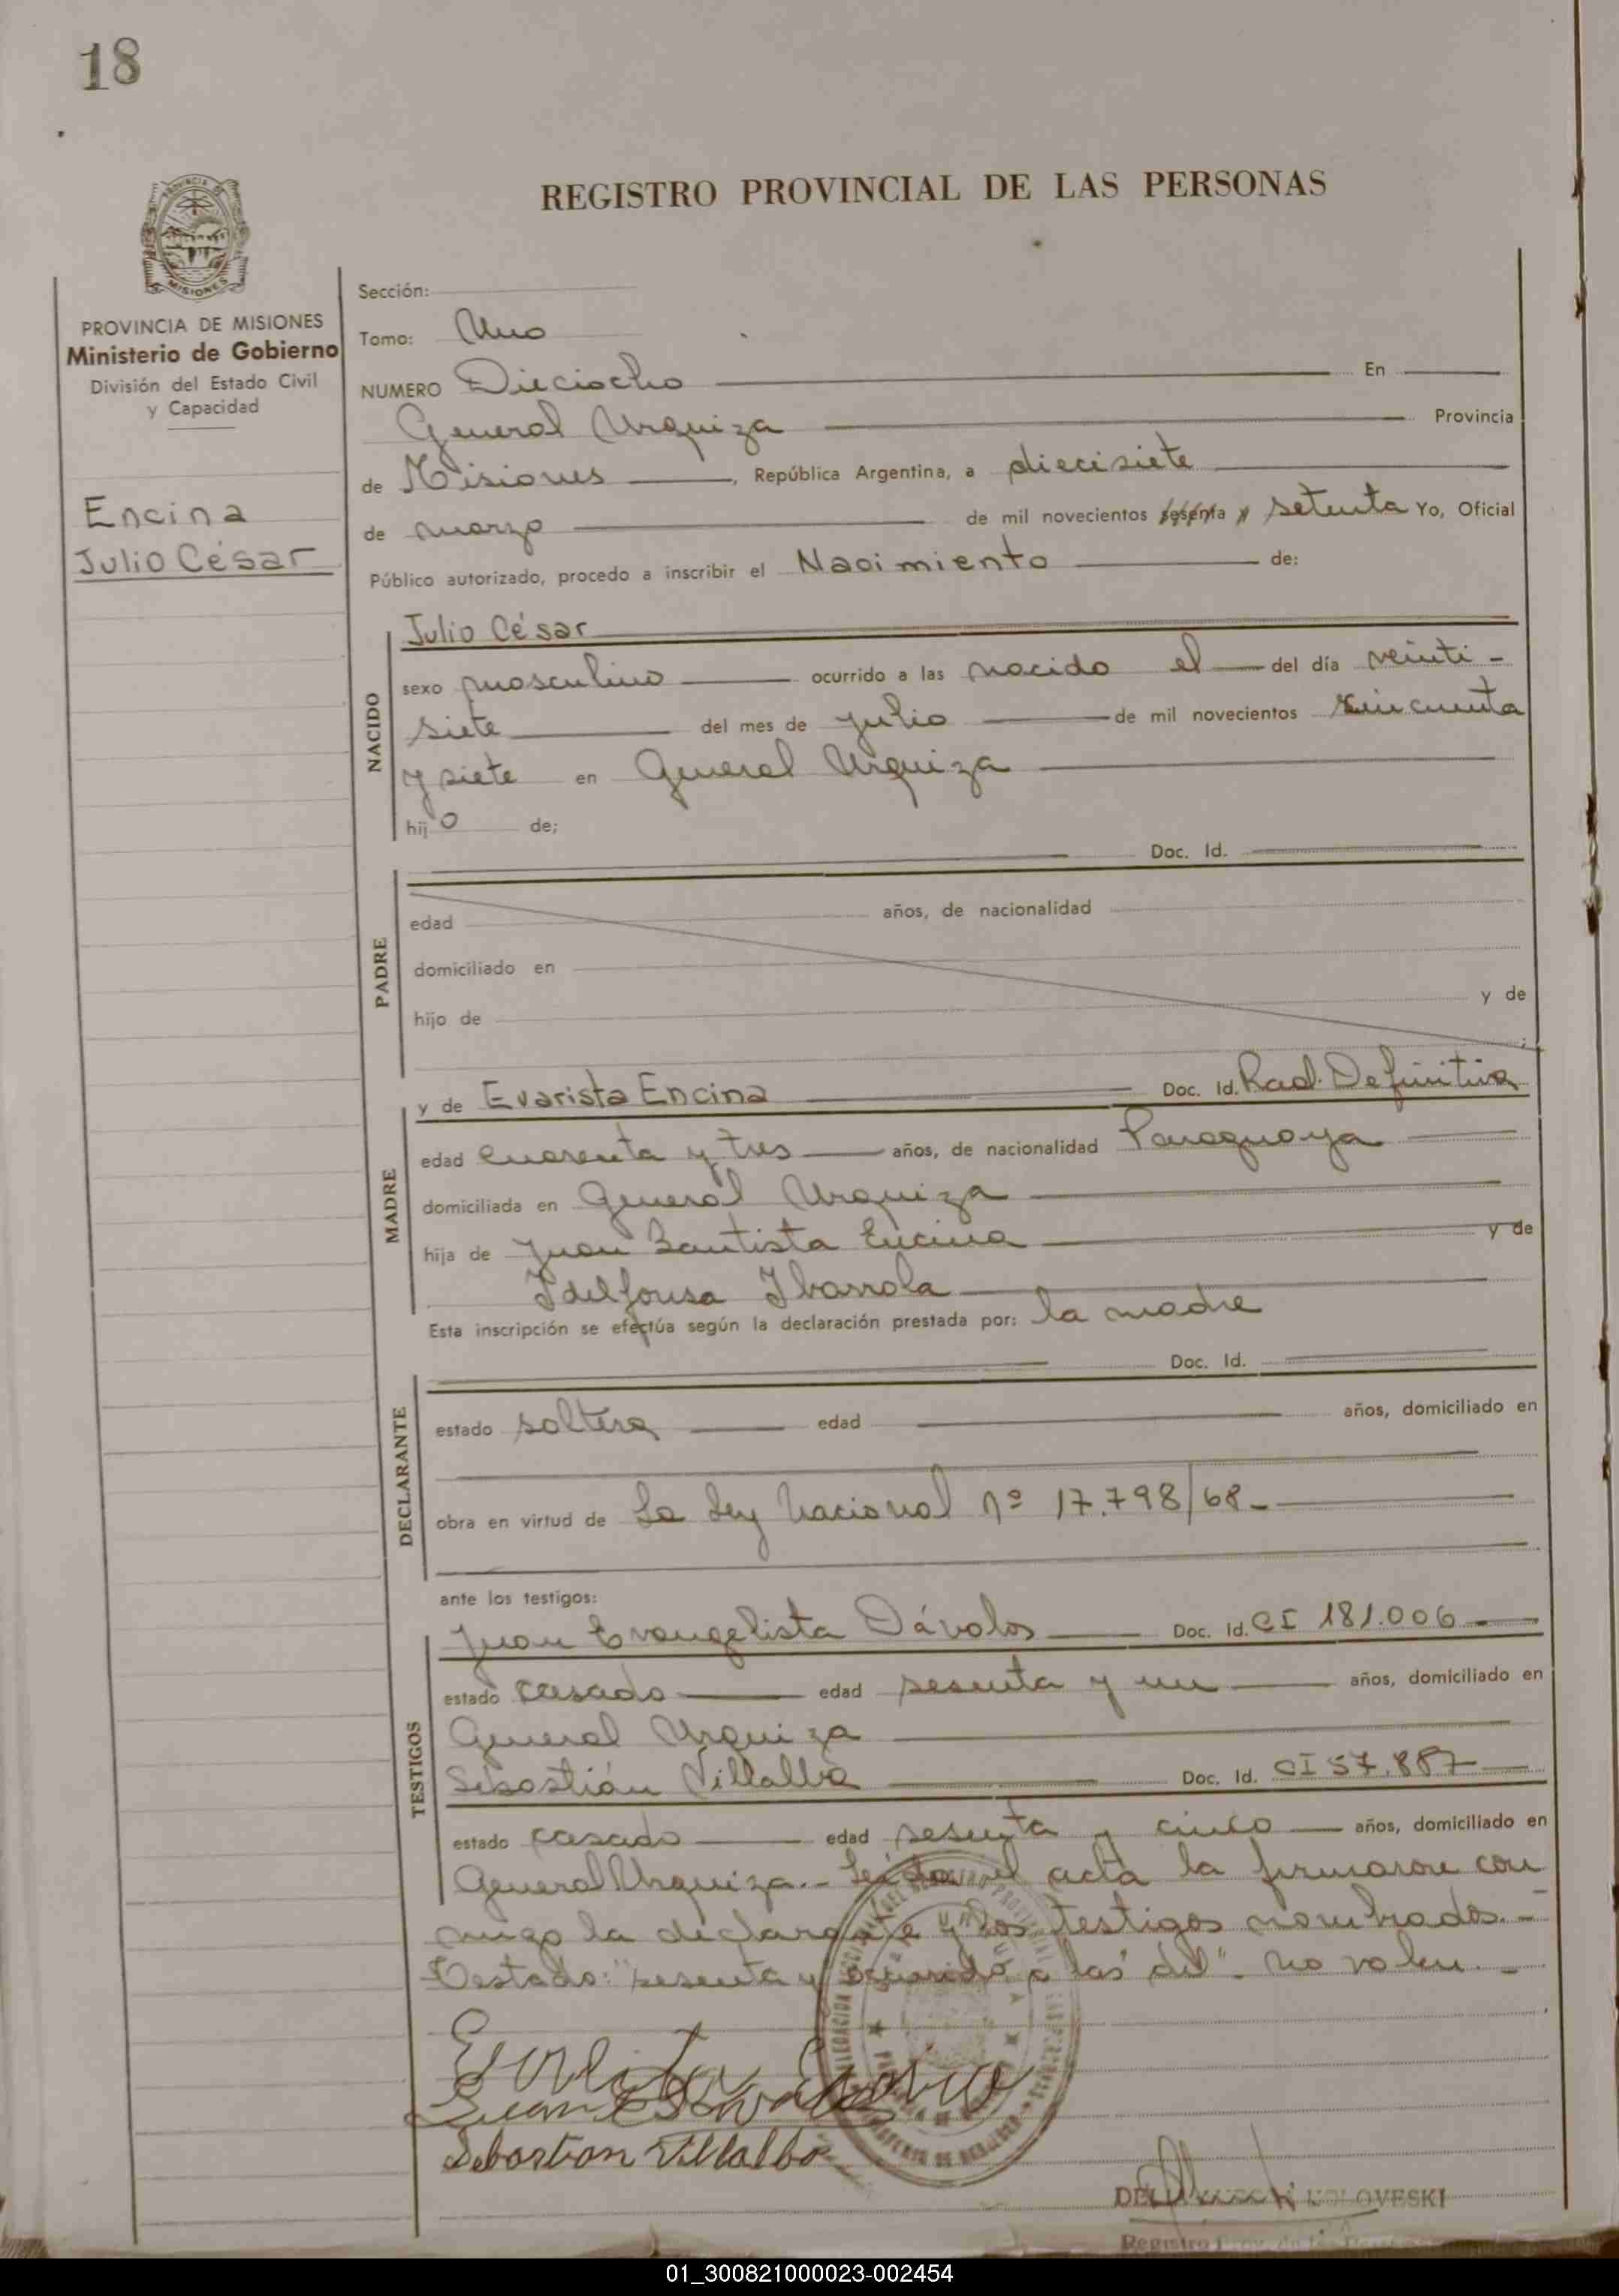 18
PROVINCIA DE MISIONES
Ministerio de Gobierno
División del Estado Civil
y Capacidad
Encina
Julio César
REGISTRO PROVINCIAL DE LAS PERSONAS
Sección:
Tomo: Uno
NUMERO Dieciocho En
General Urquiza Provincia
de Misiones, República Argentina, a diecisiete
de marzo de mil novecientos sesenta y setenta Yo, Oficial
Público autorizado, procedo a inscribir el Nacimiento de:
NACIDO
Julio César
sexo masculino ocurrido a las nacido el del día veinti-
siete del mes de julio de mil novecientos cincuenta
y siete en General Urquiza
hijo de;
PADRE
Doc. Id.
edad años, de nacionalidad
domiciliado en
hijo de y de
MADRE
y de Evarista Encina Doc. Id. Rad. Definitiva
edad cuarenta y tres años, de nacionalidad Paraguaya
domiciliada en General Urquiza
hija de Juan Bautista Encina y de
Idelfonsa Ibarrola
Esta inscripción se efectúa según la declaración prestada por: la madre
DECLARANTE
Doc. Id.
estado soltera edad años, domiciliado en
obra en virtud de La Ley Nacional nº 17.798/68-
ante los testigos:
TESTIGOS
Juan Evangelista Dávalos Doc. Id. CI 181.006
estado casado edad sesenta y un años, domiciliado en
General Urquiza
Sebastián Villalba Doc. Id. CI 57.887
estado casado edad sesenta y cinco años, domiciliado en
General Urquiza.- Leída el acta la firmaron con
migo la declarante y los testigos nombrados.-
Testado: "sesenta y" ocurrido a las" del"- no valen.-
Sebastian Villalba
OVESKI
01_300821000023-002454